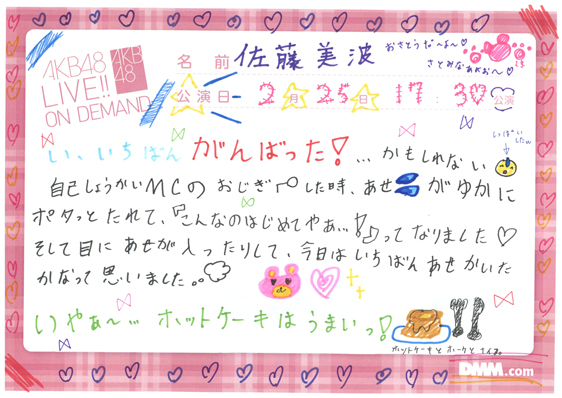 AKB48
LIVE!!
ON DEMAND
AKB
48
名前 佐藤美波
おさとうな〜よ〜♡
さとみなあよぉ〜♡
公演日 2月25日 17:30公演
い、いちばん がんばった! …かもしれない
しっぱいしたw
自己しょうかいMCの おじぎ した時、あせ がゆかに
ポタッとたれて、『こんなのはじめてやぁ…!』ってなりました♡
そして目に あせが入ったりして、今日は いちばん あせかいた
かなって 思いました。。
いやぁ〜… ホットケーキは うまいっ!
ホットケーキと ホークと ナイフ。
DMM.com